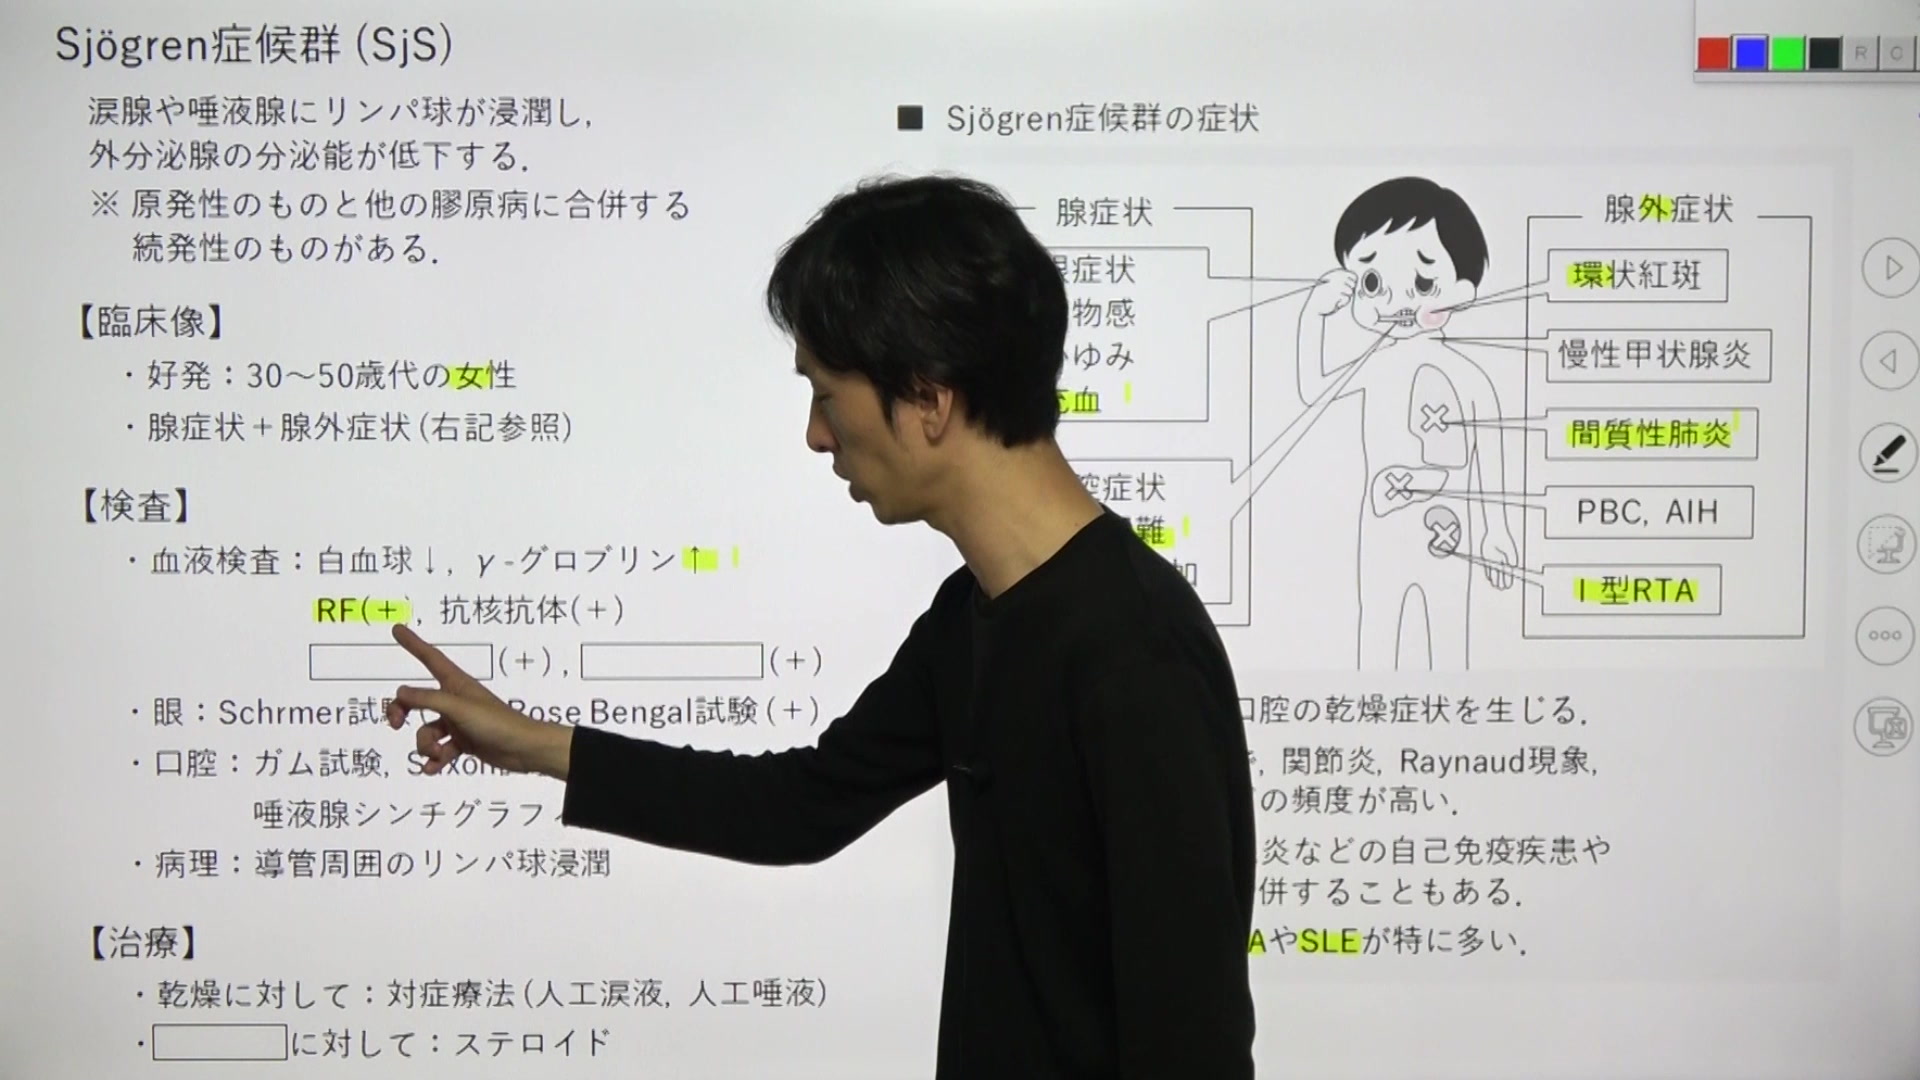 Sjögren症候群 (SjS)
涙腺や唾液腺にリンパ球が浸潤し,
外分泌腺の分泌能が低下する.
※ 原発性のものと他の膠原病に合併する
続発性のものがある.
【臨床像】
・好発：30〜50歳代の女性
・腺症状＋腺外症状 (右記参照)
【検査】
・血液検査：白血球↓, γ-グロブリン↑
RF(＋), 抗核抗体(＋)
(＋), (＋)
・眼：Schrmer試験 Rose Bengal試験 (＋)
・口腔：ガム試験,
唾液腺シンチグラフ
・病理：導管周囲のリンパ球浸潤
【治療】
・乾燥に対して：対症療法 (人工涙液, 人工唾液)
・ に対して：ステロイド
■ Sjögren症候群の症状
腺症状
症状
物感
ゆみ
血
症状
難
加
腺外症状
環状紅斑
慢性甲状腺炎
間質性肺炎
PBC, AIH
Ⅰ型RTA
口腔の乾燥症状を生じる.
, 関節炎, Raynaud現象,
の頻度が高い.
炎などの自己免疫疾患や
併することもある.
AやSLEが特に多い.
R C